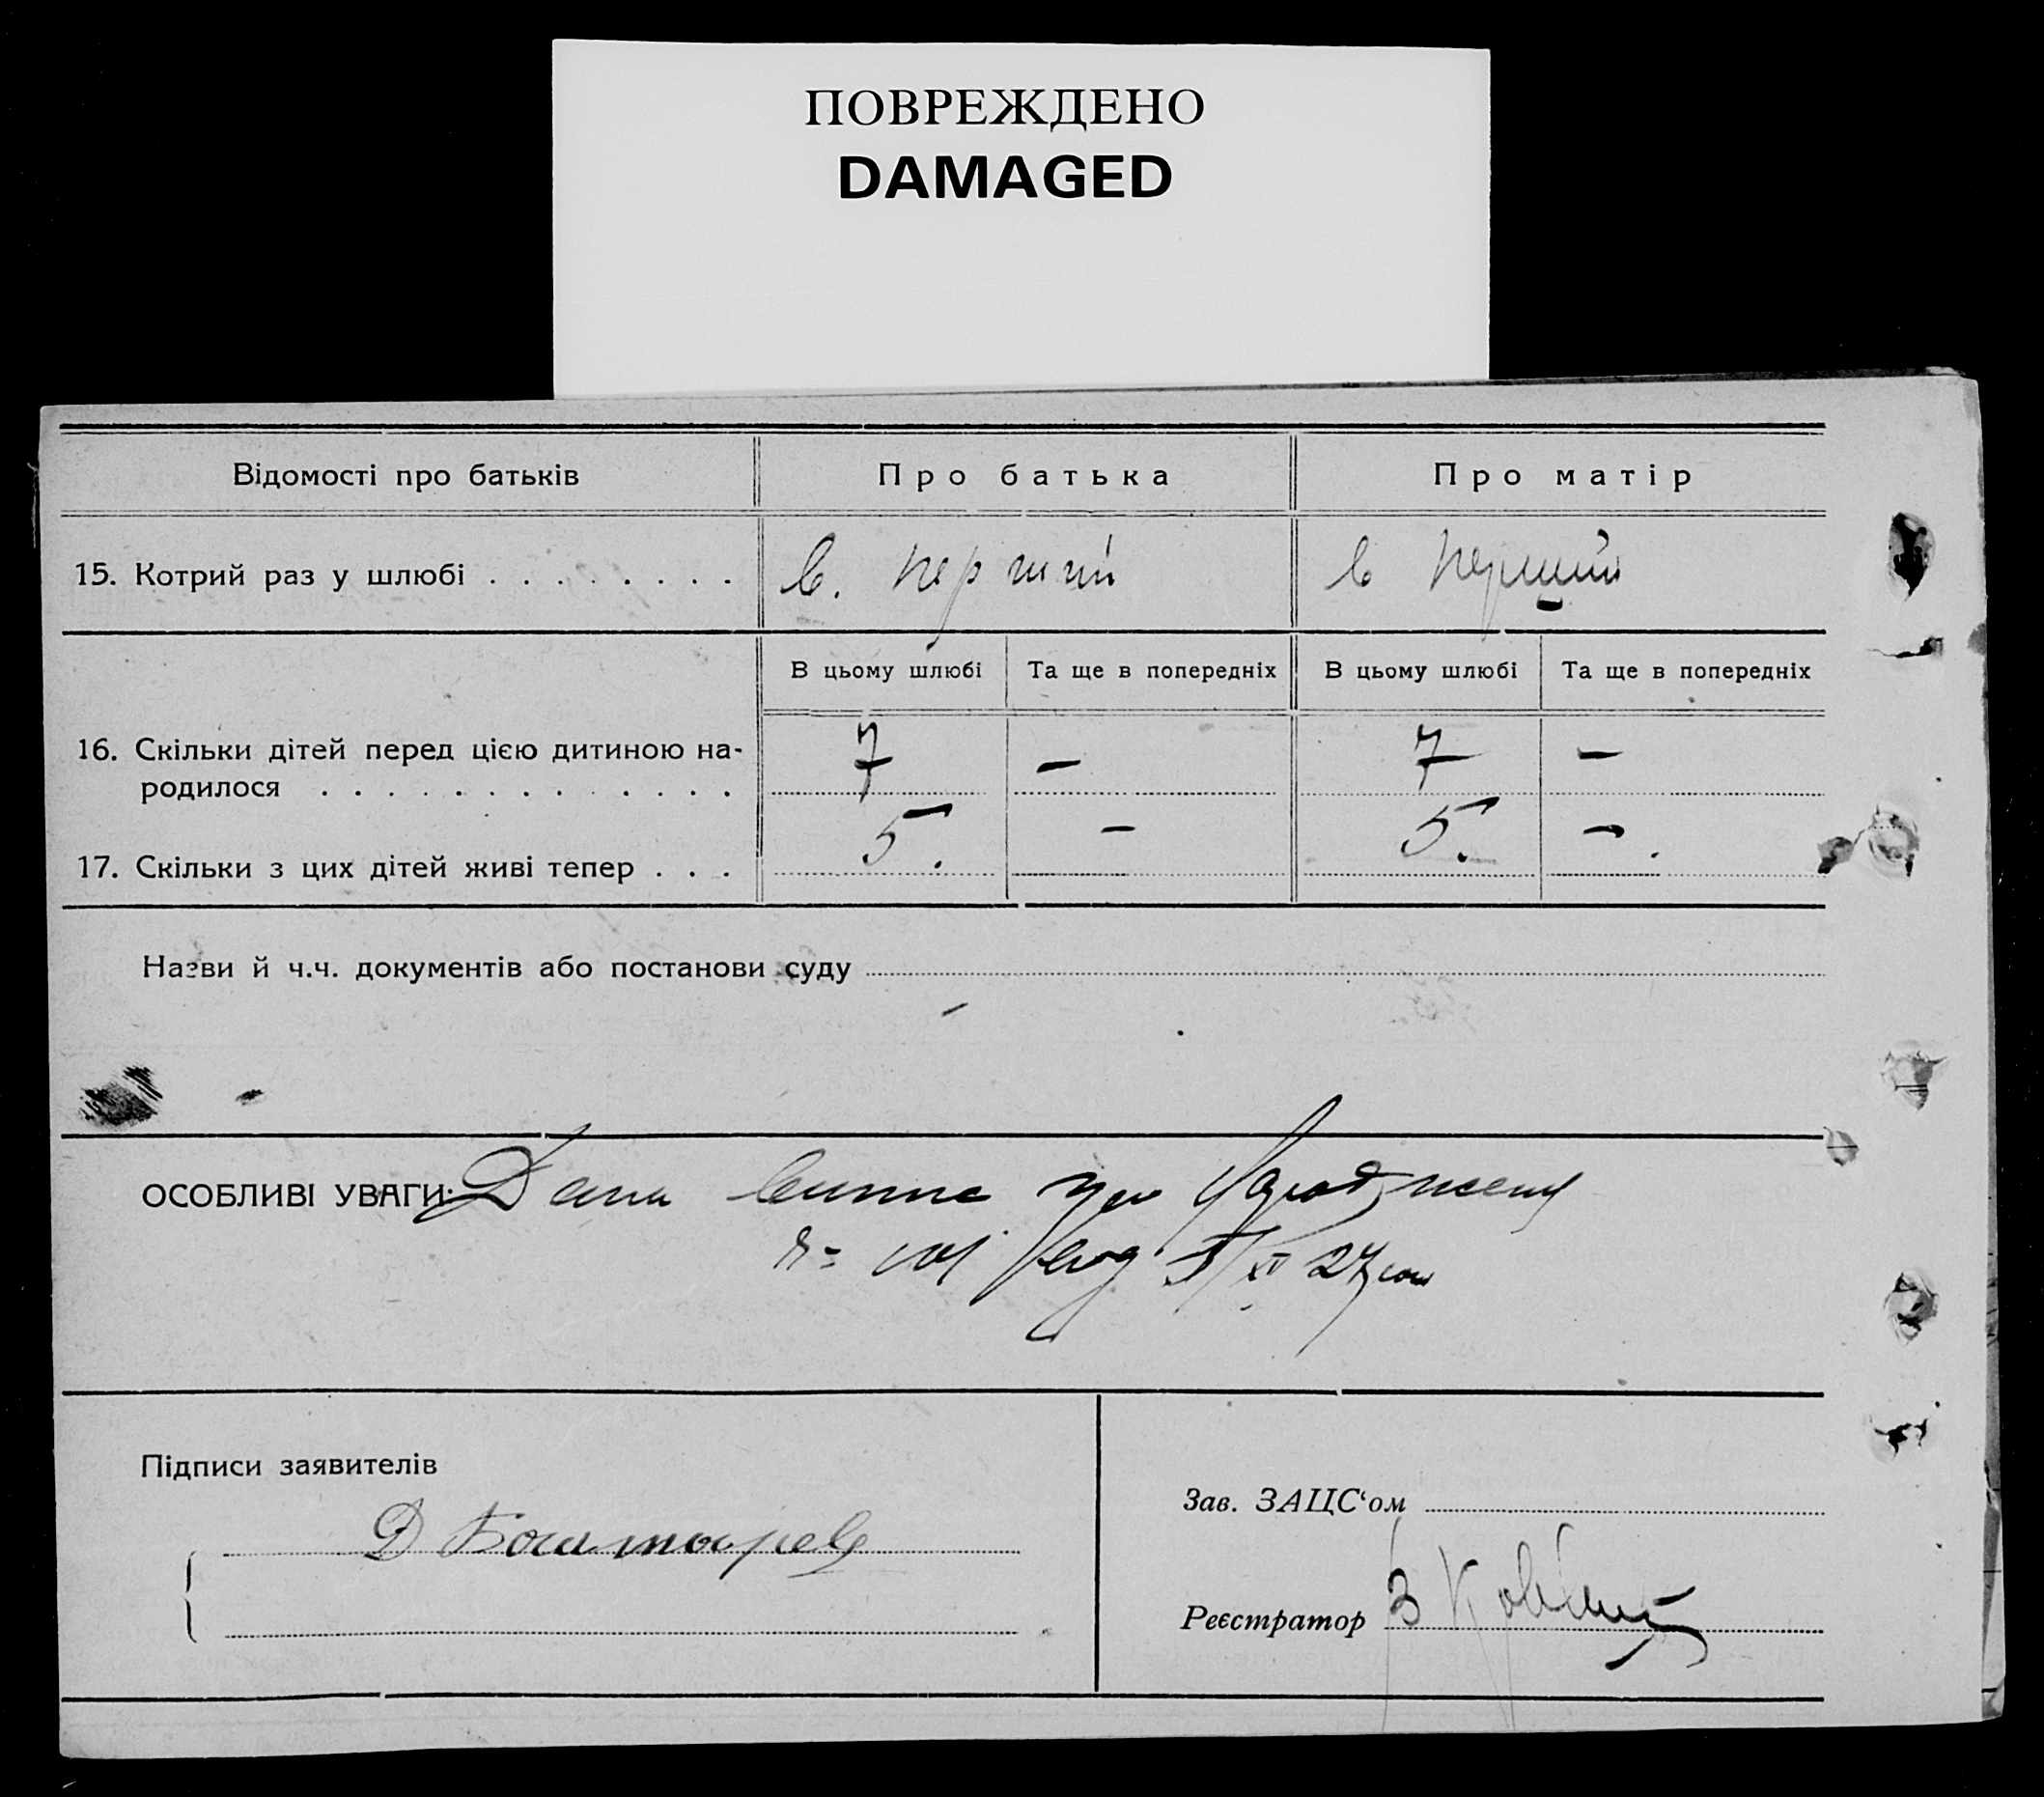 ПОВРЕЖДЕНО
DAMAGED
Відомості про батьків
Про батька
Про матір
15. Котрий раз у шлюбі . . . . . . . .
в. перший
в перший
В цьому шлюбі
Та ще в попередніх
В цьому шлюбі
Та ще в попередніх
16. Скільки дітей перед цією дитиною на-
родилося . . . . . . . . . . . . .
7
–
7
–
17. Скільки з цих дітей живі тепер . . .
5.
–
5.
– .
Назви й ч.ч. документів або постанови суду
ОСОБЛИВІ УВАГИ: Дана випис про
5/XI 27
Підписи заявителів
Зав. ЗАЦС‘ом
Д
Реєстратор